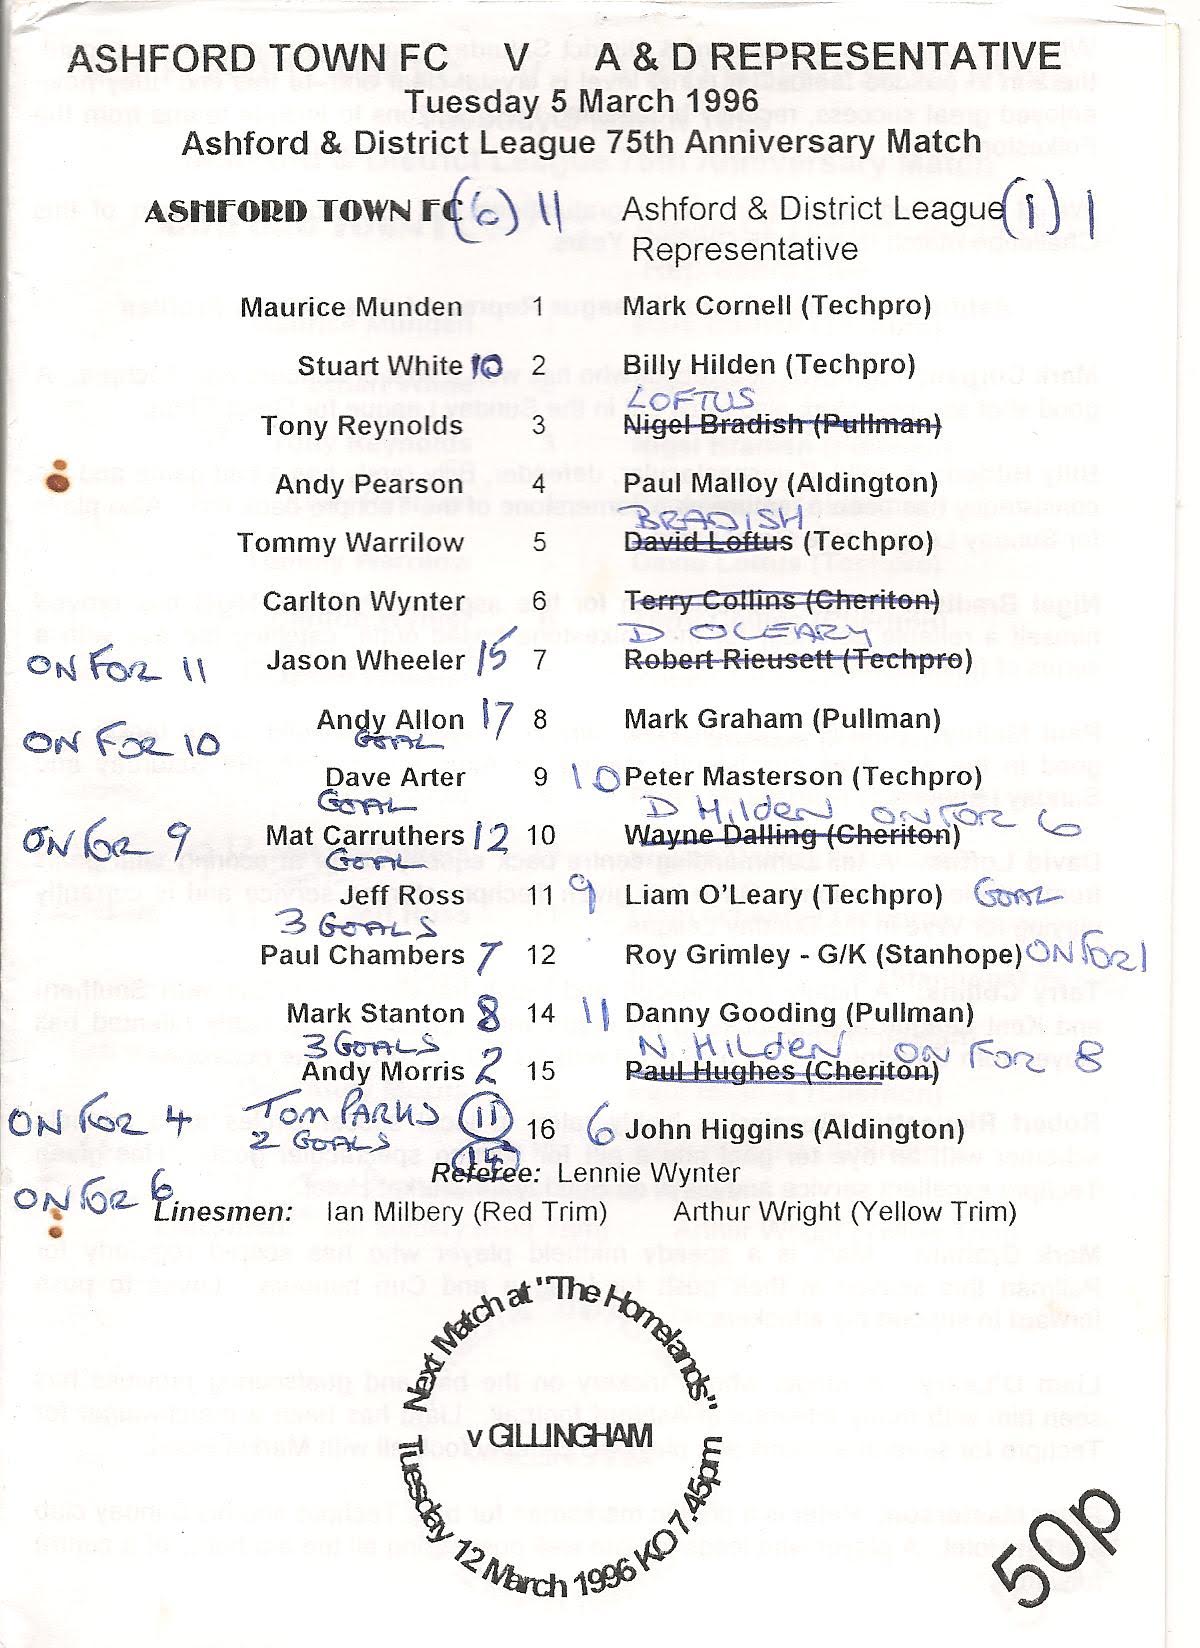 ASHFORD TOWN FC V A & D REPRESENTATIVE
Tuesday 5 March 1996
Ashford & District League 75th Anniversary Match
ASHFORD TOWN FC (6) 11 Ashford & District League (1) 1
Representative
Maurice Munden 1 Mark Cornell (Techpro)
Stuart White 10 2 Billy Hilden (Techpro)
LOFTUS
Tony Reynolds 3 Nigel Bradish (Pullman)
Andy Pearson 4 Paul Malloy (Aldington)
BRADISH
Tommy Warrilow 5 David Loftus (Techpro)
Carlton Wynter 6 Terry Collins (Cheriton)
D. OLEARY
ON FOR 11 Jason Wheeler 15 7 Robert Rieusett (Techpro)
Andy Allon 17 8 Mark Graham (Pullman)
ON FOR 10 GOAL
Dave Arter 9 10 Peter Masterson (Techpro)
GOAL D HILDEN ON FOR 6
ON FOR 9 Mat Carruthers 12 10 Wayne Dalling (Cheriton)
GOAL
Jeff Ross 11 9 Liam O'Leary (Techpro) GOAL
3 GOALS
Paul Chambers 7 12 Roy Grimley - G/K (Stanhope) ON FOR 1
Mark Stanton 8 14 11 Danny Gooding (Pullman)
3 GOALS N. HILDEN ON FOR 8
Andy Morris 2 15 Paul Hughes (Cheriton)
ON FOR 4 TOM PARKS 11 16 6 John Higgins (Aldington)
2 GOALS
Referee: Lennie Wynter
ON FOR 6
Linesmen: Ian Milbery (Red Trim) Arthur Wright (Yellow Trim)
Next Match at "The Homelands"
v GILLINGHAM
Tuesday 12 March 1996 KO 7.45pm
50p